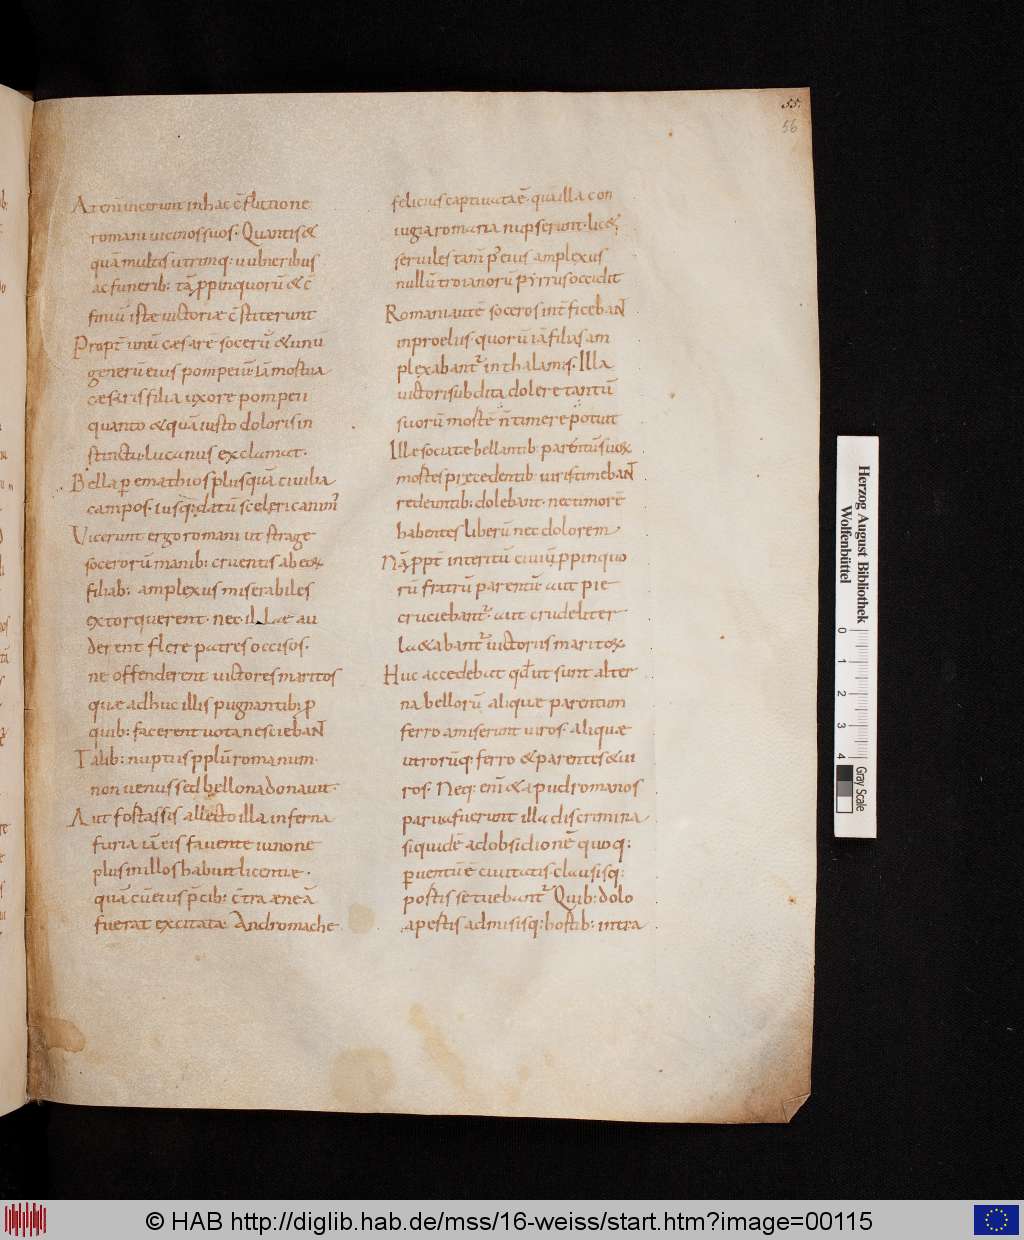 55.
56
At eni vicerunt in hac c̄flictione
romani vicinos suos· Quantis &
quā multis utrimq: vulneribus
ac funerib: tā p̱pinquorū & c̄
finiū istae victoriae c̄stiterunt
Propt̄ unū caesarē socerū & unū
generū eius pompeiū· iā mortua
caesaris filia uxore pompeii
quanto & quā iusto doloris in
stinctu· lucanus exclamat·
Bella p̱ emathios plusquā civilia
campos· iusq: datū sceleri canimꝰ
Vicerunt ergo romani ut strage
socerorū manib: cruentis ab eoꝝ
filiab: amplexus miserabiles
extorquerent· nec illae au
derent flere patres occisos·
ne offenderent victores maritos
quae adhuc illis pugnantib: p̱
quib: facerent vota nesciebaNT
Talib: nuptiis p̱plū romanum·
non venus sed bellona donavit·
Aut fortassis allecto illa inferna
furia iā eis favente iunone
plus in illos habuit licentiae·
quā cū eius p̄cib: c̄tra aeneā
fuerat excitata· Andromache
felicius captivata ē· quā illa con
iugia romana nupserunt· lic&
serviles tam̄ p̱ eius amplexus
nullū troianorū pyrrus occidit
Romani autē soceros int̄ficebaNT
in proeliis· quorū iā filias am
plexabantr̄ in thalamis· Illa
victori subdita dolere tantū
suorū mortē n̄ timere potuit
Illae sociatae bellantib: parentū suoꝝ
mortes precedentib: viris timebaNT
redeuntib: dolebant· nec timorē
habentes liberū nec dolorem
Nā p̱pt̄ interitū civiū p̱pinquo
rū fratrū parentū aut pie
cruciebantr̄· aut crudeliter
l&abantr̄ victoriis maritoꝝ
Huc accedebat qđ ut sunt alter
na bellorū aliquae parentum
ferro amiserunt viros· aliquae
utrorūq: ferro & parentes & vi
ros· Neq: eni & apud romanos
parva fuerunt illa discrimina
siquidē ad obsidionē quoq:
p̱ventū ē civitatis· clausisq:
portis se tuebantr̄· Quib: dolo
apertis admissisq: hostib: intra
Herzog August Bibliothek
Wolfenbüttel
0 1 2 3 4
Gray Scale
© HAB http://diglib.hab.de/mss/16-weiss/start.htm?image=00115